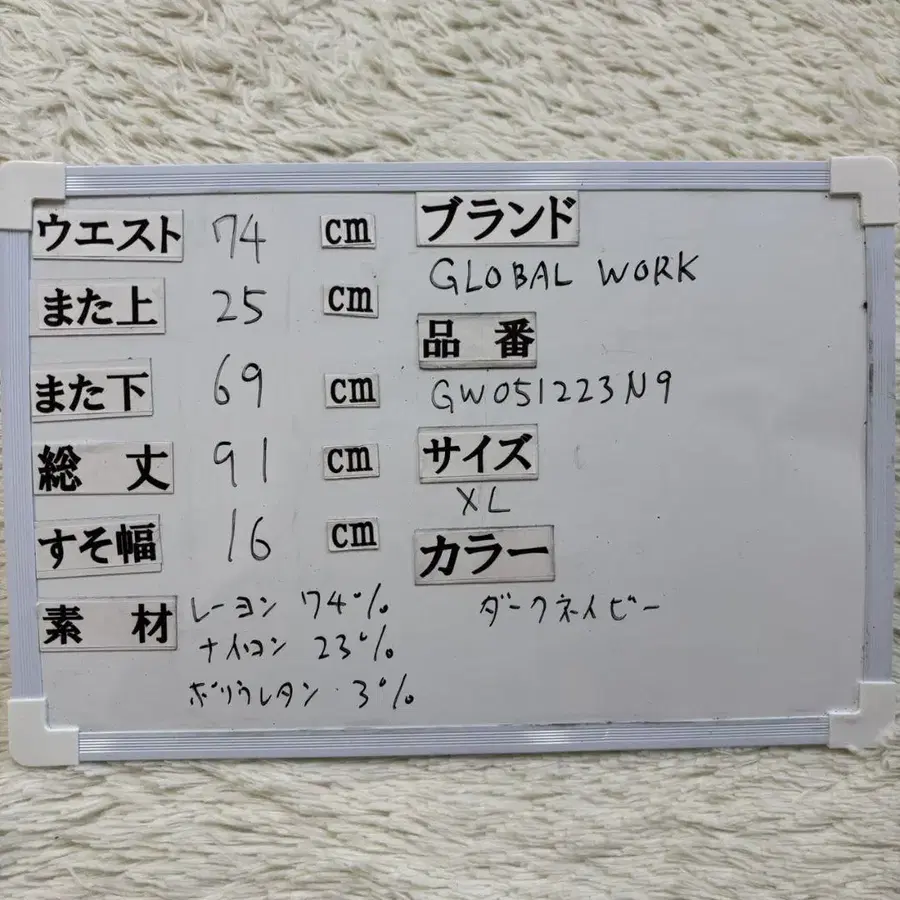 ウエスト 74 cm
また上 25 cm
また下 69 cm
総丈 91 cm
すそ幅 16 cm
素材 レーヨン 74%
ナイロン 23%
ポリウレタン 3%
ブランド
GLOBAL WORK
品番
GW051223N9
サイズ
XL
カラー
ダークネイビー